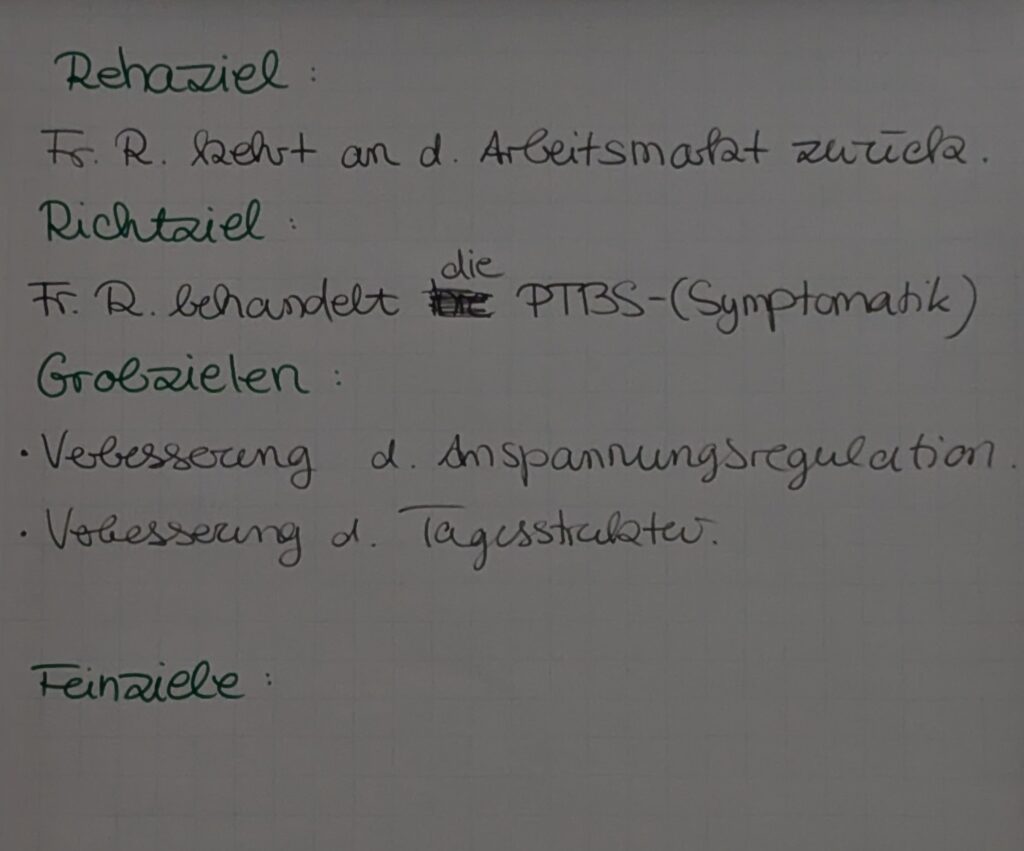 Rehaziel :
Fr. R. kehrt an d. Arbeitsmarkt zurück.
Richtziel :
die
Fr. R. behandelt PTBS-(Symptomatik)
Grobzielen :
· Verbesserung d. Anspannungsregulation.
· Verbesserung d. Tagesstruktur.
Feinziele :